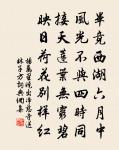 畢竟西湖六月中
風光不與四時同
接天蓮葉無窮碧
映日荷花別樣紅
楊萬里曉出淨慈寺送
林子方